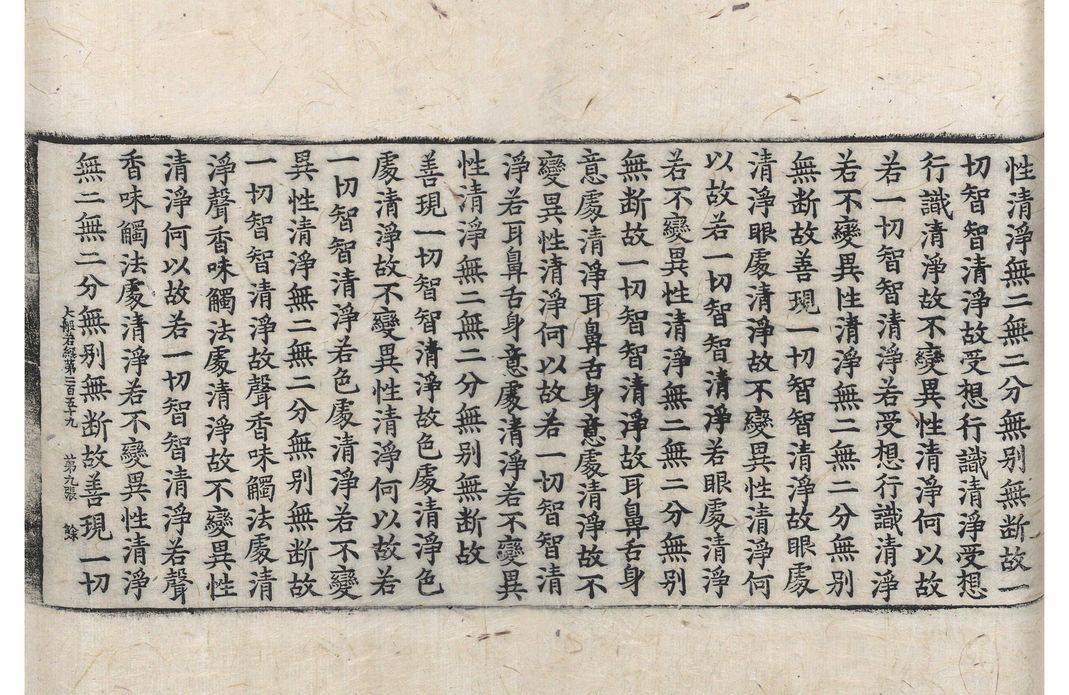 性清淨無二無二分無別無斷故一
切智智清淨故受想行識清淨受想
行識清淨故不變異性清淨何以故
若一切智智清淨若受想行識清淨
若不變異性清淨無二無二分無別
無斷故善現一切智智清淨故眼處
清淨眼處清淨故不變異性清淨何
以故若一切智智清淨若眼處清淨
若不變異性清淨無二無二分無別
無斷故一切智智清淨故耳鼻舌身
意處清淨耳鼻舌身意處清淨故不
變異性清淨何以故若一切智智清
淨若耳鼻舌身意處清淨若不變異
性清淨無二無二分無別無斷故
善現一切智智清淨故色處清淨色
處清淨故不變異性清淨何以故若
一切智智清淨若色處清淨若不變
異性清淨無二無二分無別無斷故
一切智智清淨故聲香味觸法處清
淨聲香味觸法處清淨故不變異性
清淨何以故若一切智智清淨若聲
香味觸法處清淨若不變異性清淨
無二無二分無別無斷故善現一切
大般若經第二百五十九 第九張